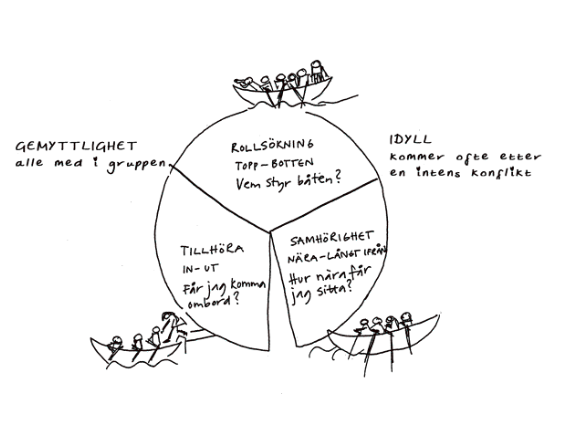 GEMYTTLIGHET
alle med i gruppen
ROLLSÖKNING
TOPP-BOTTEN
Vem styr båten?
IDYLL
kommer ofte etter
en intens konflikt
TILLHÖRA
IN-UT
Får jag komma
ombord?
SAMHÖRIGHET
NÄRA-LÅNGT IFRÅN
Hur nära får
jag sitta?